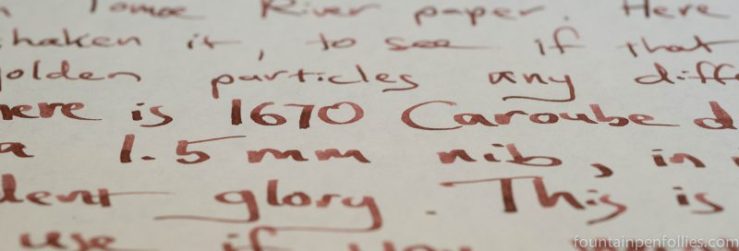 Tomoe River paper. Here
shaken it, to see if that
golden particles any diff
here is 1670 Caroube d
a 1.5 mm nib, in
dent glory. This is
use if you
fountainpenfollies.com